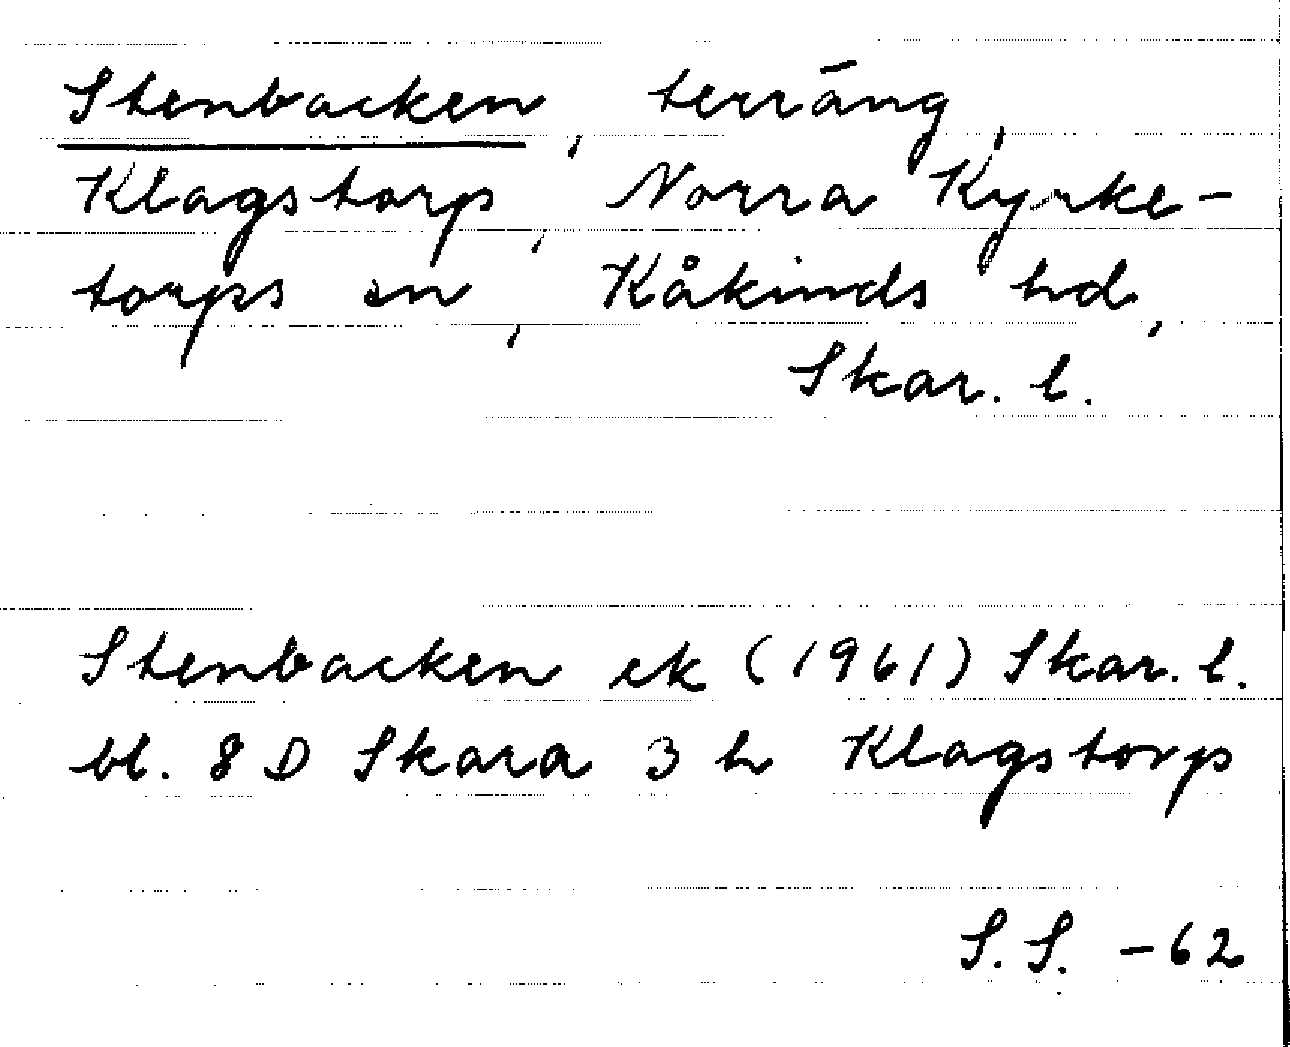 Stenbacken, terräng,
Klagstorp, Norra Kyrke-
torps sn, Kåkinds hd,
Skar. l.
Stenbacken ek (1961) Skar. l.
bl. 8 D Skara 3 h Klagstorp
S.S. -62